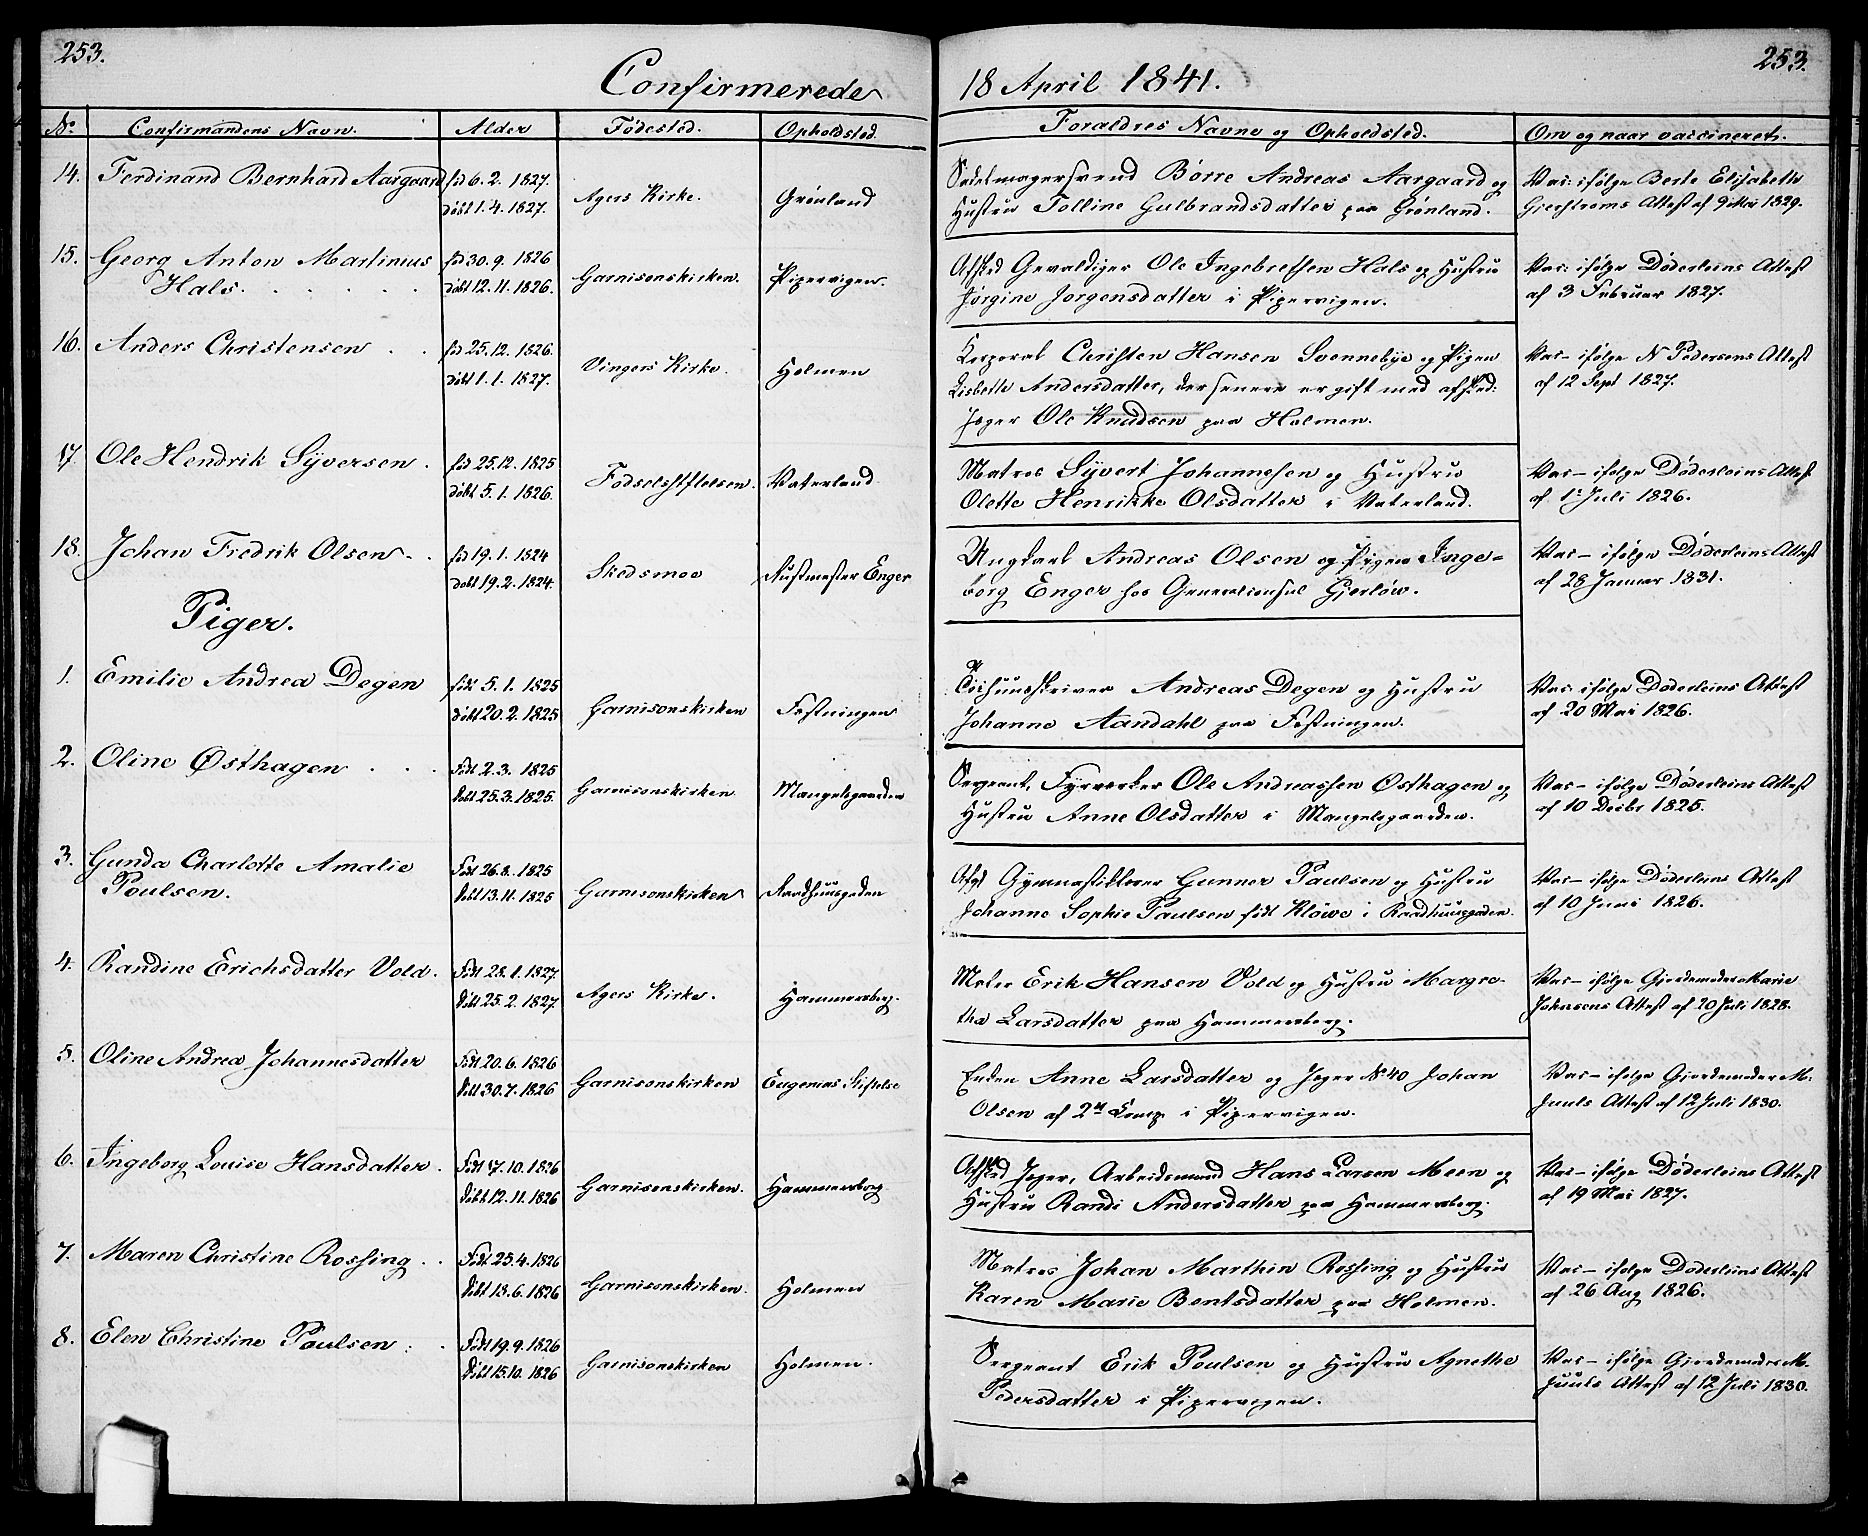 253.
253.
Confirmerede 18 April 1841.
No. Confirmandens Navn. Alder Fødested. Opholdsted. Forældres Navne og Opholdsted. Om og naar vaccineret.
14. Ferdinand Bernhard Aargaard fød 6. 2. 1827. Agers Kirke. Grønland Sadelmagersvend Børre Andreas Aargaard og Vac: ifølge Berte Elisabeth
døbt 1. 4. 1827. Hustru Tolline Gulbrandsdatter paa Grønland. Attest af 9 Mai 1829.
15. Georg Anton Martinius fød 30. 9. 1826 Garnisonskirken. Pipervigen. Afsked Gevaldiger Ole Ingebretsen Hals og Hustru Vac: ifølge Døderleins Attest
Hals. døbt 12. 11. 1826. Jørgine Jørgensdatter i Pipervigen. af 3 Februar 1827.
16. Anders Christensen fød 25. 12. 1826. Vingers Kirke. Holmen Corporal Christen Hansen Svennebye og Pigen Vac- ifølge N Pedersens Attest
døbt 1. 1. 1827. Lisbeth Andersdatter, der senere er gift med afsked: af 12 Sept 1827.
Jæger Ole Knudsen paa Holmen.
17. Ole Hendrik Syversen. fød 25. 12. 1825 Fødselsstiftelsen. Vaterland Matros Syvert Johannesen og Hustru Vac- ifølge Døderleins Attest
døbt 5. 1. 1826. Olette Henrikke Olsdatter i Vaterland. af 1: Juli 1826.
18. Johan Fredrik Olsen. fød 19. 1. 1824 Skedsmoe Rustmester Enger Ungkarl Andreas Olsen og Pigen Inge- Vac- ifølge Døderleins Attest
døbt 19. 2. 1824. borg Enger hos Generalconsul Gjerløw. af 28 Januar 1831.
Piger.
1. Emilie Andrea Degen født 5. 1. 1825 Garnisonskirken Festningen Andreas Degen og Hustru Vac: ifølge Døderleins Attest
døbt 20. 2. 1825 Johanne Aandahl paa Festningen. af 20 Mai 1826.
2. Oline Østhagen Født 2. 3. 1825 Garnisonskirken Mangelsgaarden Sergeant, Fyrverker Ole Andreassen Østhagen og Vac- ifølge Døderleins Attest
døbt 25. 3. 1825. Hustru Anne Olsdatter i Mangelsgaarden. af 10 Decbr 1825.
3. Gunda Charlotte Amalie Født 26. 8. 1825 Garnisonskirken Raadhuusgaden Afgd Gymnastiklærer Gunner Paulsen og Hustru Vac- ifølge Døderleins Attest
Poulsen. døbt 13. 11. 1825 Johanne Sophie Paulsen født Kløwe i Raadhuusgaden. af 10 Juni 1826.
4. Randine Erichsdatter Vold. Født 28. 1. 1827 Agers Kirke. Hammersborg. Erik Hansen Vold og Hustru Margre- Vac- ifølge Gjordemoder Marie
døbt 25. 2. 1827 the Larsdatter paa Hammersborg. Johnsens Attest af 20 Juli 1828.
5. Oline Andrea Johannesdatter Født 20. 6. 1826 Garnisonskirken Eugenias Stiftelse Enken Anne Larsdatter og Jæger No 40 Johan Vac- ifølge Gjordemoder M.
døbt 30. 7. 1826 Olsen af 2den Comp i Pipervigen. Juuls Attest af 12 Juli 1830.
6. Ingeborg Louise Hansdatter. Født 17. 10. 1826 Garnisonskirken. Hammersborg Afsked Jæger, Arbeidsmand Hans Larsen Moen og Vac- ifølge Døderleins Attest
døbt 12. 11. 1826 Hustru Randi Andersdatter paa Hammersborg. af 19 Mai 1827.
7. Maren Christine Rossing Født 25. 4. 1826 Garnisonskirken. Holmen Matros Johan Marthin Rossing og Hustru Vac- ifølge Døderleins Attest
døbt 13. 6. 1826 Karen Marie Bentsdatter paa Holmen. af 26 Aug 1826.
8. Elen Christine Poulsen Født 19. 9. 1826 Garnisonskirken Holmen. Sergeant Erik Poulsen og Hustru Agnethe Vac- ifølge Gjordemoder M.
døbt 15. 10. 1826 Pedersdatter i Pipervigen. Juuls Attest af 12 Juli 1830.